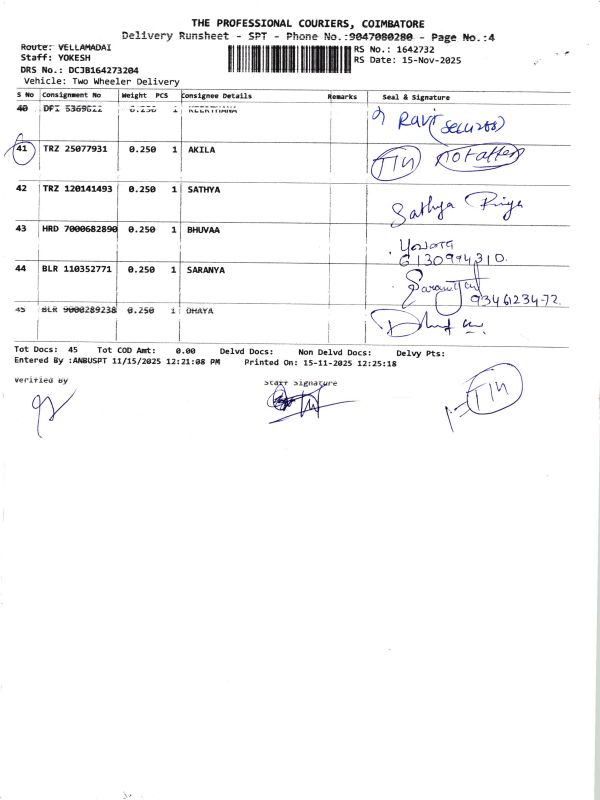 THE PROFESSIONAL COURIERS, COIMBATORE
Delivery Runsheet - SPT - Phone No.:9047080280 - Page No.:4
Route: VELLAMADAI RS No.: 1642732
Staff: YOKESH RS Date: 15-Nov-2025
DRS No.: DCJB164273204
Vehicle: Two Wheeler Delivery
S No Consignment No Weight PCS Consignee Details Remarks Seal & Signature
40 DPI 5369622 0.250 1 KEERTHANA Ravi (Security)
41 TRZ 25077931 0.250 1 AKILA
42 TRZ 120141493 0.250 1 SATHYA Sathya Priya
43 HRD 7000682890 0.250 1 BHUVAA
6130994310
44 BLR 110352771 0.250 1 SARANYA
9346123472
45 BLR 9000289238 0.250 1 DHAYA
Tot Docs: 45 Tot COD Amt: 0.00 Delvd Docs: Non Delvd Docs: Delvy Pts:
Entered By :ANBUSPT 11/15/2025 12:21:08 PM Printed On: 15-11-2025 12:25:18
Verified By Staff Signature